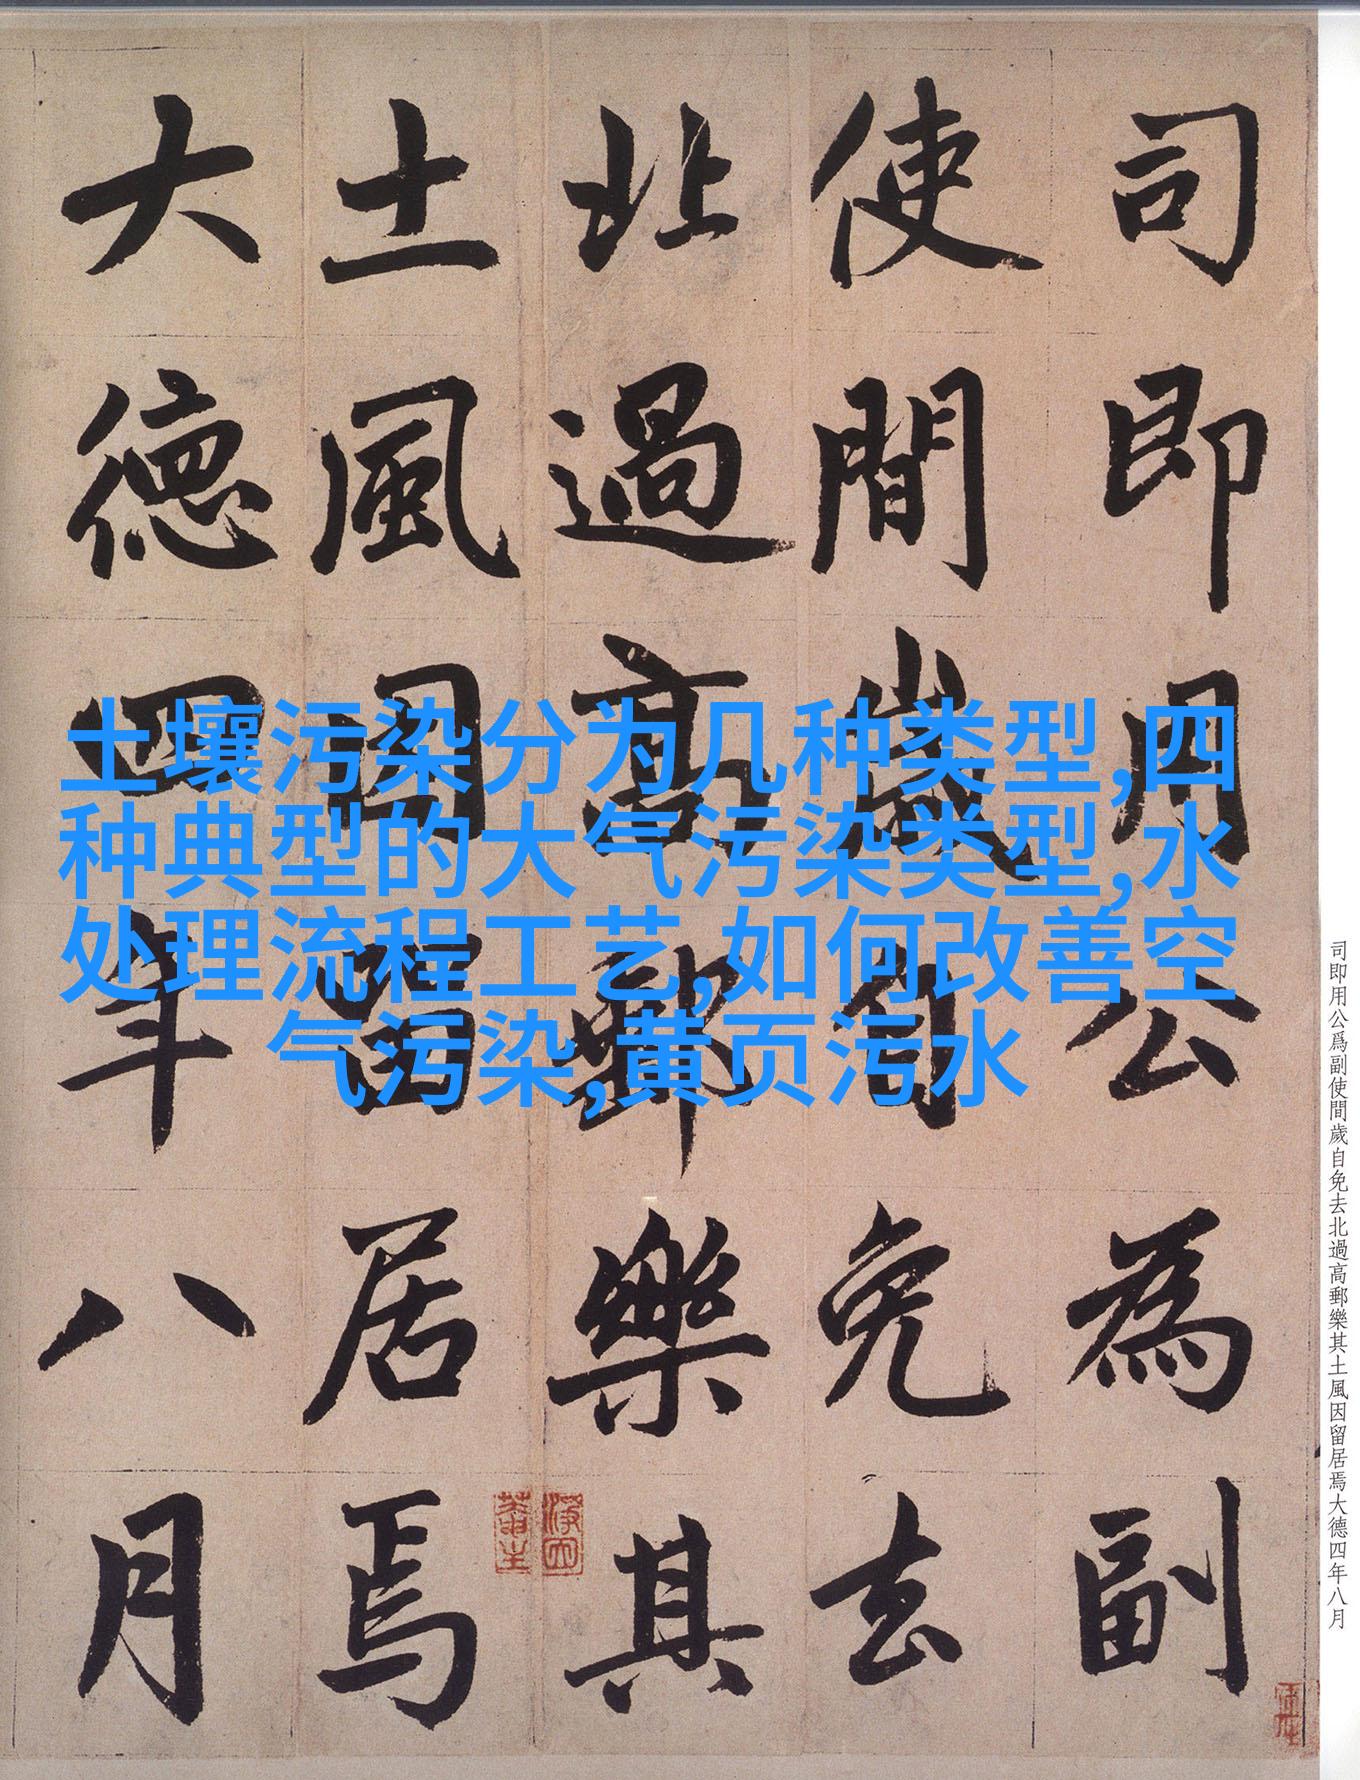 司即用公為副
使間歲自免去
北過高郵樂其
土風因留居焉
大德四年八月
土壤污染分为几种类型,四
种典型的大气污染类型,水
处理流程工艺,如何改善空
气污染,黄页污水
司即用公爲副使間歲自免去北過高郵樂其土風因留居焉大德四年八月